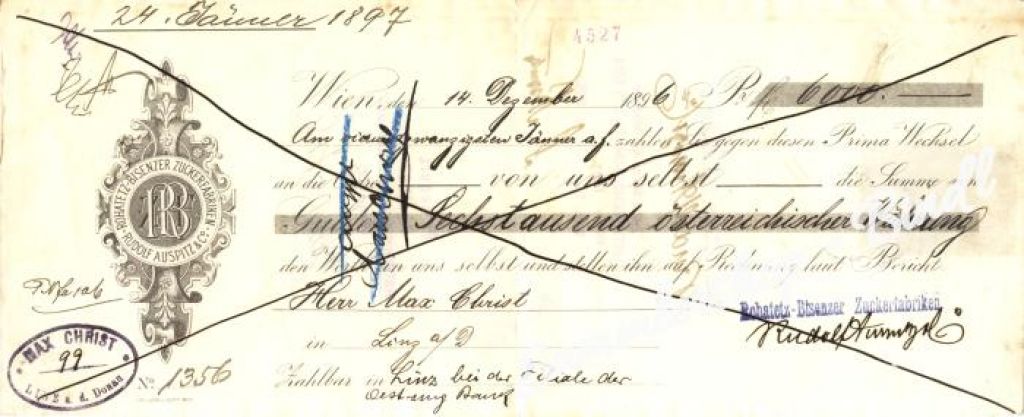 24. Jänner 1897
4527
Wien, den 14. Dezember 1896 Pr fl. 6000.—
Am vierundzwanzigsten Jänner a.f. zahlen Sie gegen diesen Prima Wechsel
an die Ordre von uns selbst die Summe von
Gulden Sechstausend österreichischer Währung
den Werth in uns selbst und stellen ihn auf Rechnung laut Bericht
Herr Max Christ
in Linz a/D
Zahlbar in Linz bei der Filiale der
Oest-ung Bank
ROHATETZ-BISENZER ZUCKERFABRIKEN
RUDOLF AUSPITZ & Co
Rohatetz-Bisenzer Zuckerfabriken
Rudolf Auspitz & Co
MAX CHRIST
99
LINZ a. d. Donau
No. 1356